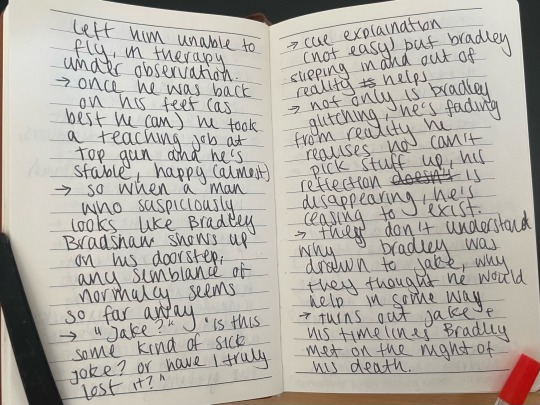 left him unable to
fly, in therapy
under observation.
→ once he was back
on his feet (as
best he can) he took
a teaching job at
top gun and he's
stable, happy (almost)
→ so when a man
who suspiciously
looks like Bradley
Bradshaw shows up
on his doorstep,
any semblance of
normalcy seems
so far away
→ "Jake?" "is this
some kind of sick
joke? or have I truly
lost it?"
→ cue explaination
(not easy) but bradley
slipping in and out of
reality helps
→ not only is bradley
glitching, he's fading
from reality he
realises he can't
pick stuff up, his
reflection doesn't is
disappearing, he's
ceasing to exist.
→ they don't understand
why bradley was
drawn to jake, why
they thought he would
help in some way
→ turns out jake &
his timelines Bradley
met on the night of
his death.